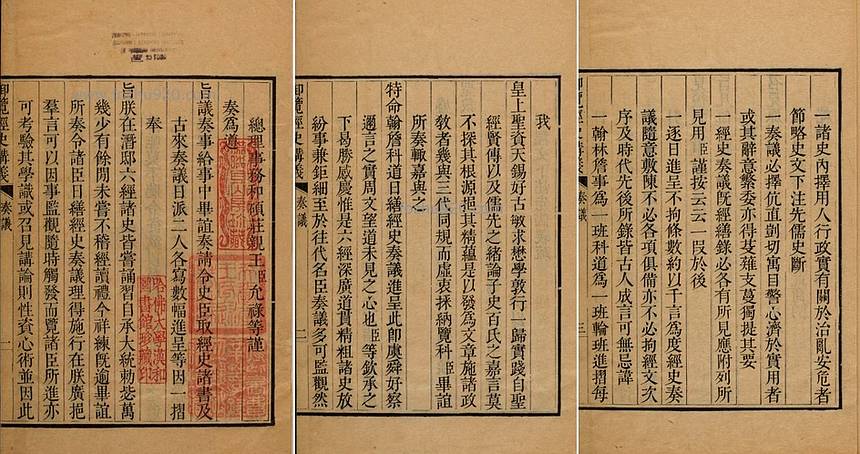 總理事務和碩莊親王臣允祿等謹
奏為遵
旨議奏事給事中畢誼奏請令史臣取經史諸書及
古來奏議日派二人各寫數幅進呈等因一摺
奉
旨朕在潛邸六經諸史皆嘗誦習自承大統勅毖萬
幾少有餘閒未嘗不稽經讀禮今祥練既逾畢誼
所奏令諸臣日繕經史奏議理得施行在朕廣挹
羣言可以因事監觀隨時觸發而覽諸臣所進亦
可考驗其學識或召見講論則性資心術並因此
御覽經史講義 奏議 一
哈佛大學漢和
圖書館珍藏印
我
皇上聖資天錫好古敏求懋學敦行一歸實踐自聖
經賢傳以及儒先之緒論子史百氏之嘉言莫
不探其根源挹其精蘊是以發為文章施諸政
敎者幾與三代同規而虛衷採納覽科臣畢誼
所奏輙嘉與之
特命翰詹科道日繕經史奏議進呈此卽虞舜好察
邇言之實周文望道未見之心也臣等欽承之
下曷勝感慶惟是六經深廣道貫精粗諸史放
紛事兼鉅細至於往代名臣奏議多可監觀然
御覽經史講義 奏議 二
一諸史內擇用人行政實有關於治亂安危者
節略史文下注先儒史斷
一奏議必擇伉直剴切寓目警心濟於實用者
或其辭意繁委亦得芟薙支蔓獨提其要
一經史奏議旣經繕錄必各有所見應附列所
見用臣謹按云云一段於後
一逐日進呈不拘條數約以千言為度經史奏
議隨意敷陳不必各項俱備亦不必拘經文次
序及時代先後所錄皆古人成言可無忌諱
一翰林詹事為一班科道為一班輪班進摺每
御覽經史講義 奏議 三